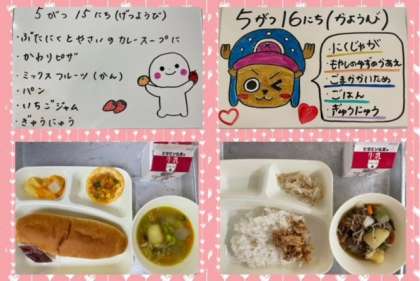 5がつ 15にち(げつようび)
・ぶたにくとやさいのカレースープに
・かわりピザ
・ミックスフルーツ(かん)
・パン
・いちごジャム
・ぎゅうにゅう
5がつ16にち(かようび)
・にくじゃが
・もやしのゆずかあえ
・ごまかかいため
・ごはん
・ぎゅうにゅう